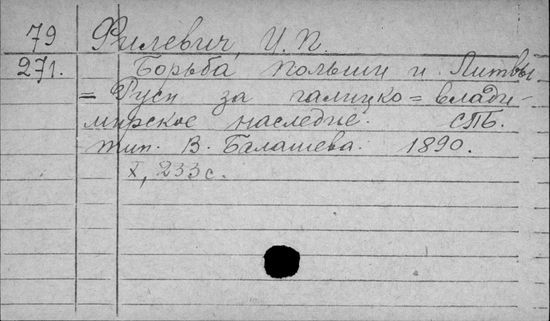 79 Филевич, И. П.
271. Борьба Польши и Литвы
= Руси за галицко = влади-
мирское наследие. СПБ.
тип. В. Балашева. 1890.
X, 233 с.